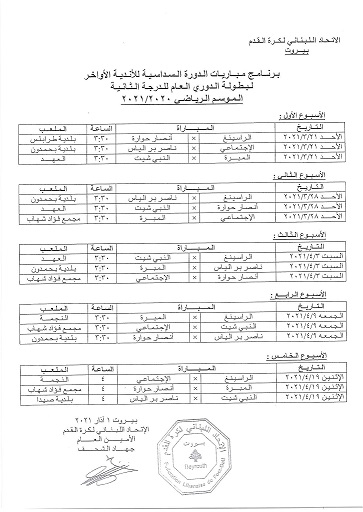 الاتحاد اللبناني لكرة القدم
بيروت
برنامج مباريات الدورة السداسية للأندية الأواخر
لبطولة الدوري العام للدرجة الثانية
الموسم الرياضي ٢٠٢١/٢٠٢٠
الأسبوع الأول :
التاريخ المباراة الساعة الملعب
الأحد ٢٠٢١/٣/٢١ الراسينغ × أنصار حوارة ٣:٣٠ بلدية طرابلس
الأحد ٢٠٢١/٣/٢١ الإجتماعي × ناصر بر الياس ٣:٣٠ بلدية بحمدون
الأحد ٢٠٢١/٣/٢١ المبرة × النبي شيت ٣:٣٠ العهد
الأسبوع الثاني :
التاريخ المباراة الساعة الملعب
الأحد ٢٠٢١/٣/٢٨ الراسينغ × ناصر بر الياس ٣:٣٠ بلدية بحمدون
الأحد ٢٠٢١/٣/٢٨ أنصار حوارة × النبي شيت ٣:٣٠ العهد
الأحد ٢٠٢١/٣/٢٨ الإجتماعي × المبرة ٣:٣٠ مجمع فؤاد شهاب
الأسبوع الثالث :
التاريخ المباراة الساعة الملعب
السبت ٢٠٢١/٤/٣ الراسينغ × النبي شيت ٣:٣٠ العهد
السبت ٢٠٢١/٤/٣ ناصر بر الياس × المبرة ٣:٣٠ بلدية بحمدون
السبت ٢٠٢١/٤/٣ أنصار حوارة × الإجتماعي ٣:٣٠ مجمع فؤاد شهاب
الأسبوع الرابع :
التاريخ المباراة الساعة الملعب
الجمعة ٢٠٢١/٤/٩ الراسينغ × المبرة ٣:٣٠ النجمة
الجمعة ٢٠٢١/٤/٩ النبي شيت × الإجتماعي ٣:٣٠ مجمع فؤاد شهاب
الجمعة ٢٠٢١/٤/٩ أنصار حوارة × ناصر بر الياس ٣:٣٠ بلدية بحمدون
الأسبوع الخامس :
التاريخ المباراة الساعة الملعب
الإثنين ٢٠٢١/٤/١٩ الراسينغ × الإجتماعي ٤ النجمة
الإثنين ٢٠٢١/٤/١٩ المبرة × أنصار حوارة ٤ مجمع فؤاد شهاب
الإثنين ٢٠٢١/٤/١٩ النبي شيت × ناصر بر الياس ٤ بلدية صيدا
بيروت ١ آذار ٢٠٢١
الاتحاد اللبناني لكرة القدم
الأمين العام
جهاد الشحف
الاتحاد اللبناني لكرة القدم
بيروت
Beyrouth
Fédération Libanaise de Football